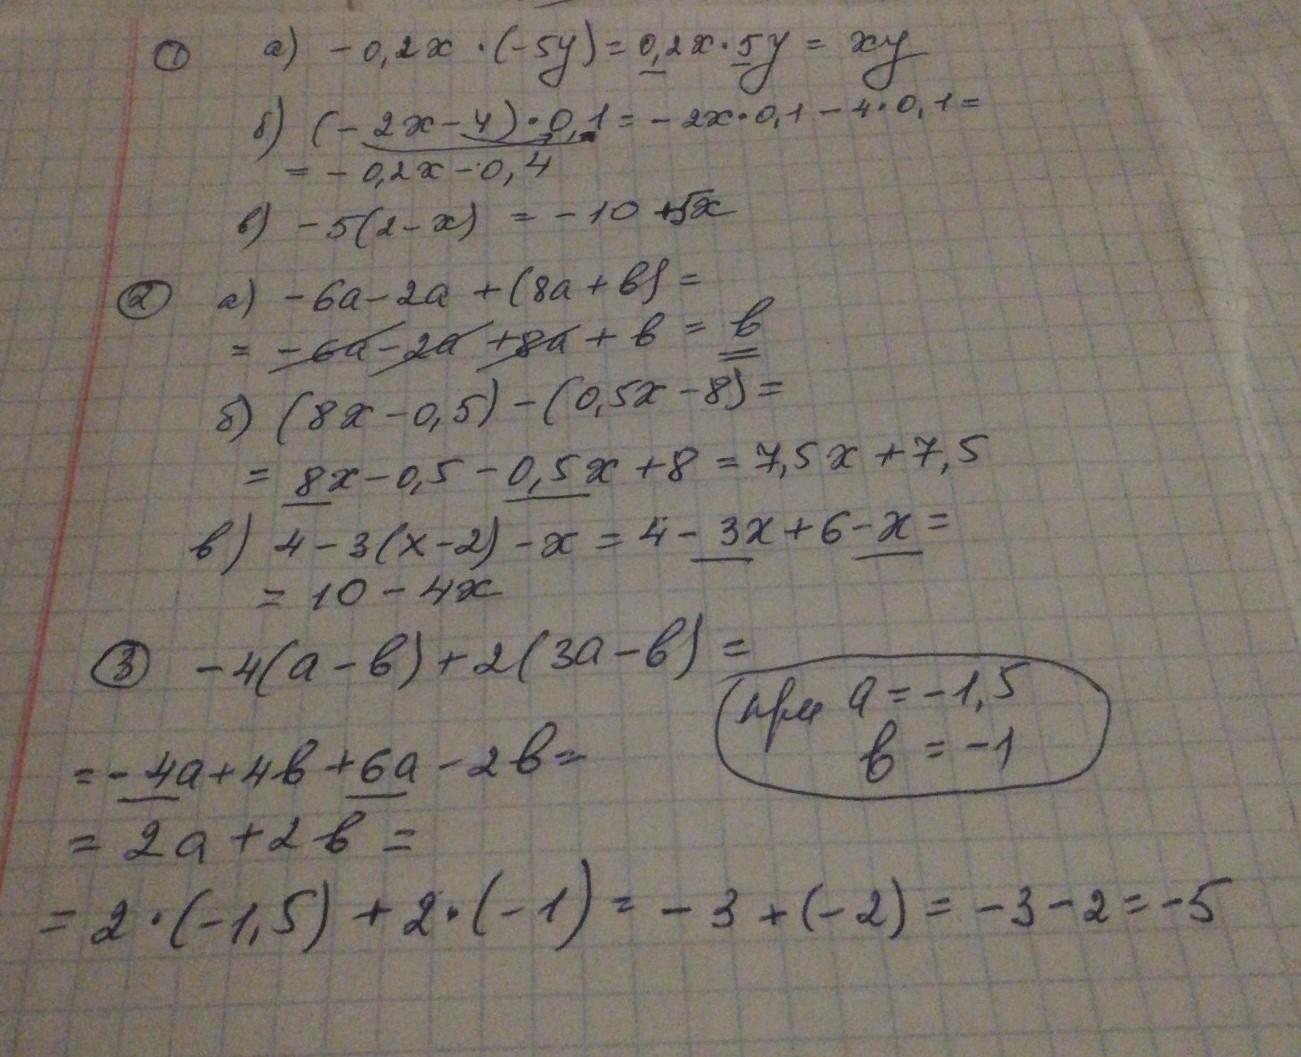 ① а) -0,2x·(-5y)=0,2x·5y = xy
б) (-2x-4)·0,1=-2x·0,1-4·0,1=
= -0,2x-0,4
в) -5(2-x) = -10+5x
② а) -6a-2a+(8a+b)=
= -6a-2a+8a+b = b
б) (8x-0,5)-(0,5x-8)=
= 8x-0,5-0,5x+8=7,5x+7,5
в) 4-3(x-2)-x=4-3x+6-x=
= 10-4x
③ -4(a-b)+2(3a-b)=
при a=-1,5
b=-1
=-4a+4b+6a-2b=
= 2a+2b=
= 2·(-1,5)+2·(-1)=-3+(-2)=-3-2=-5